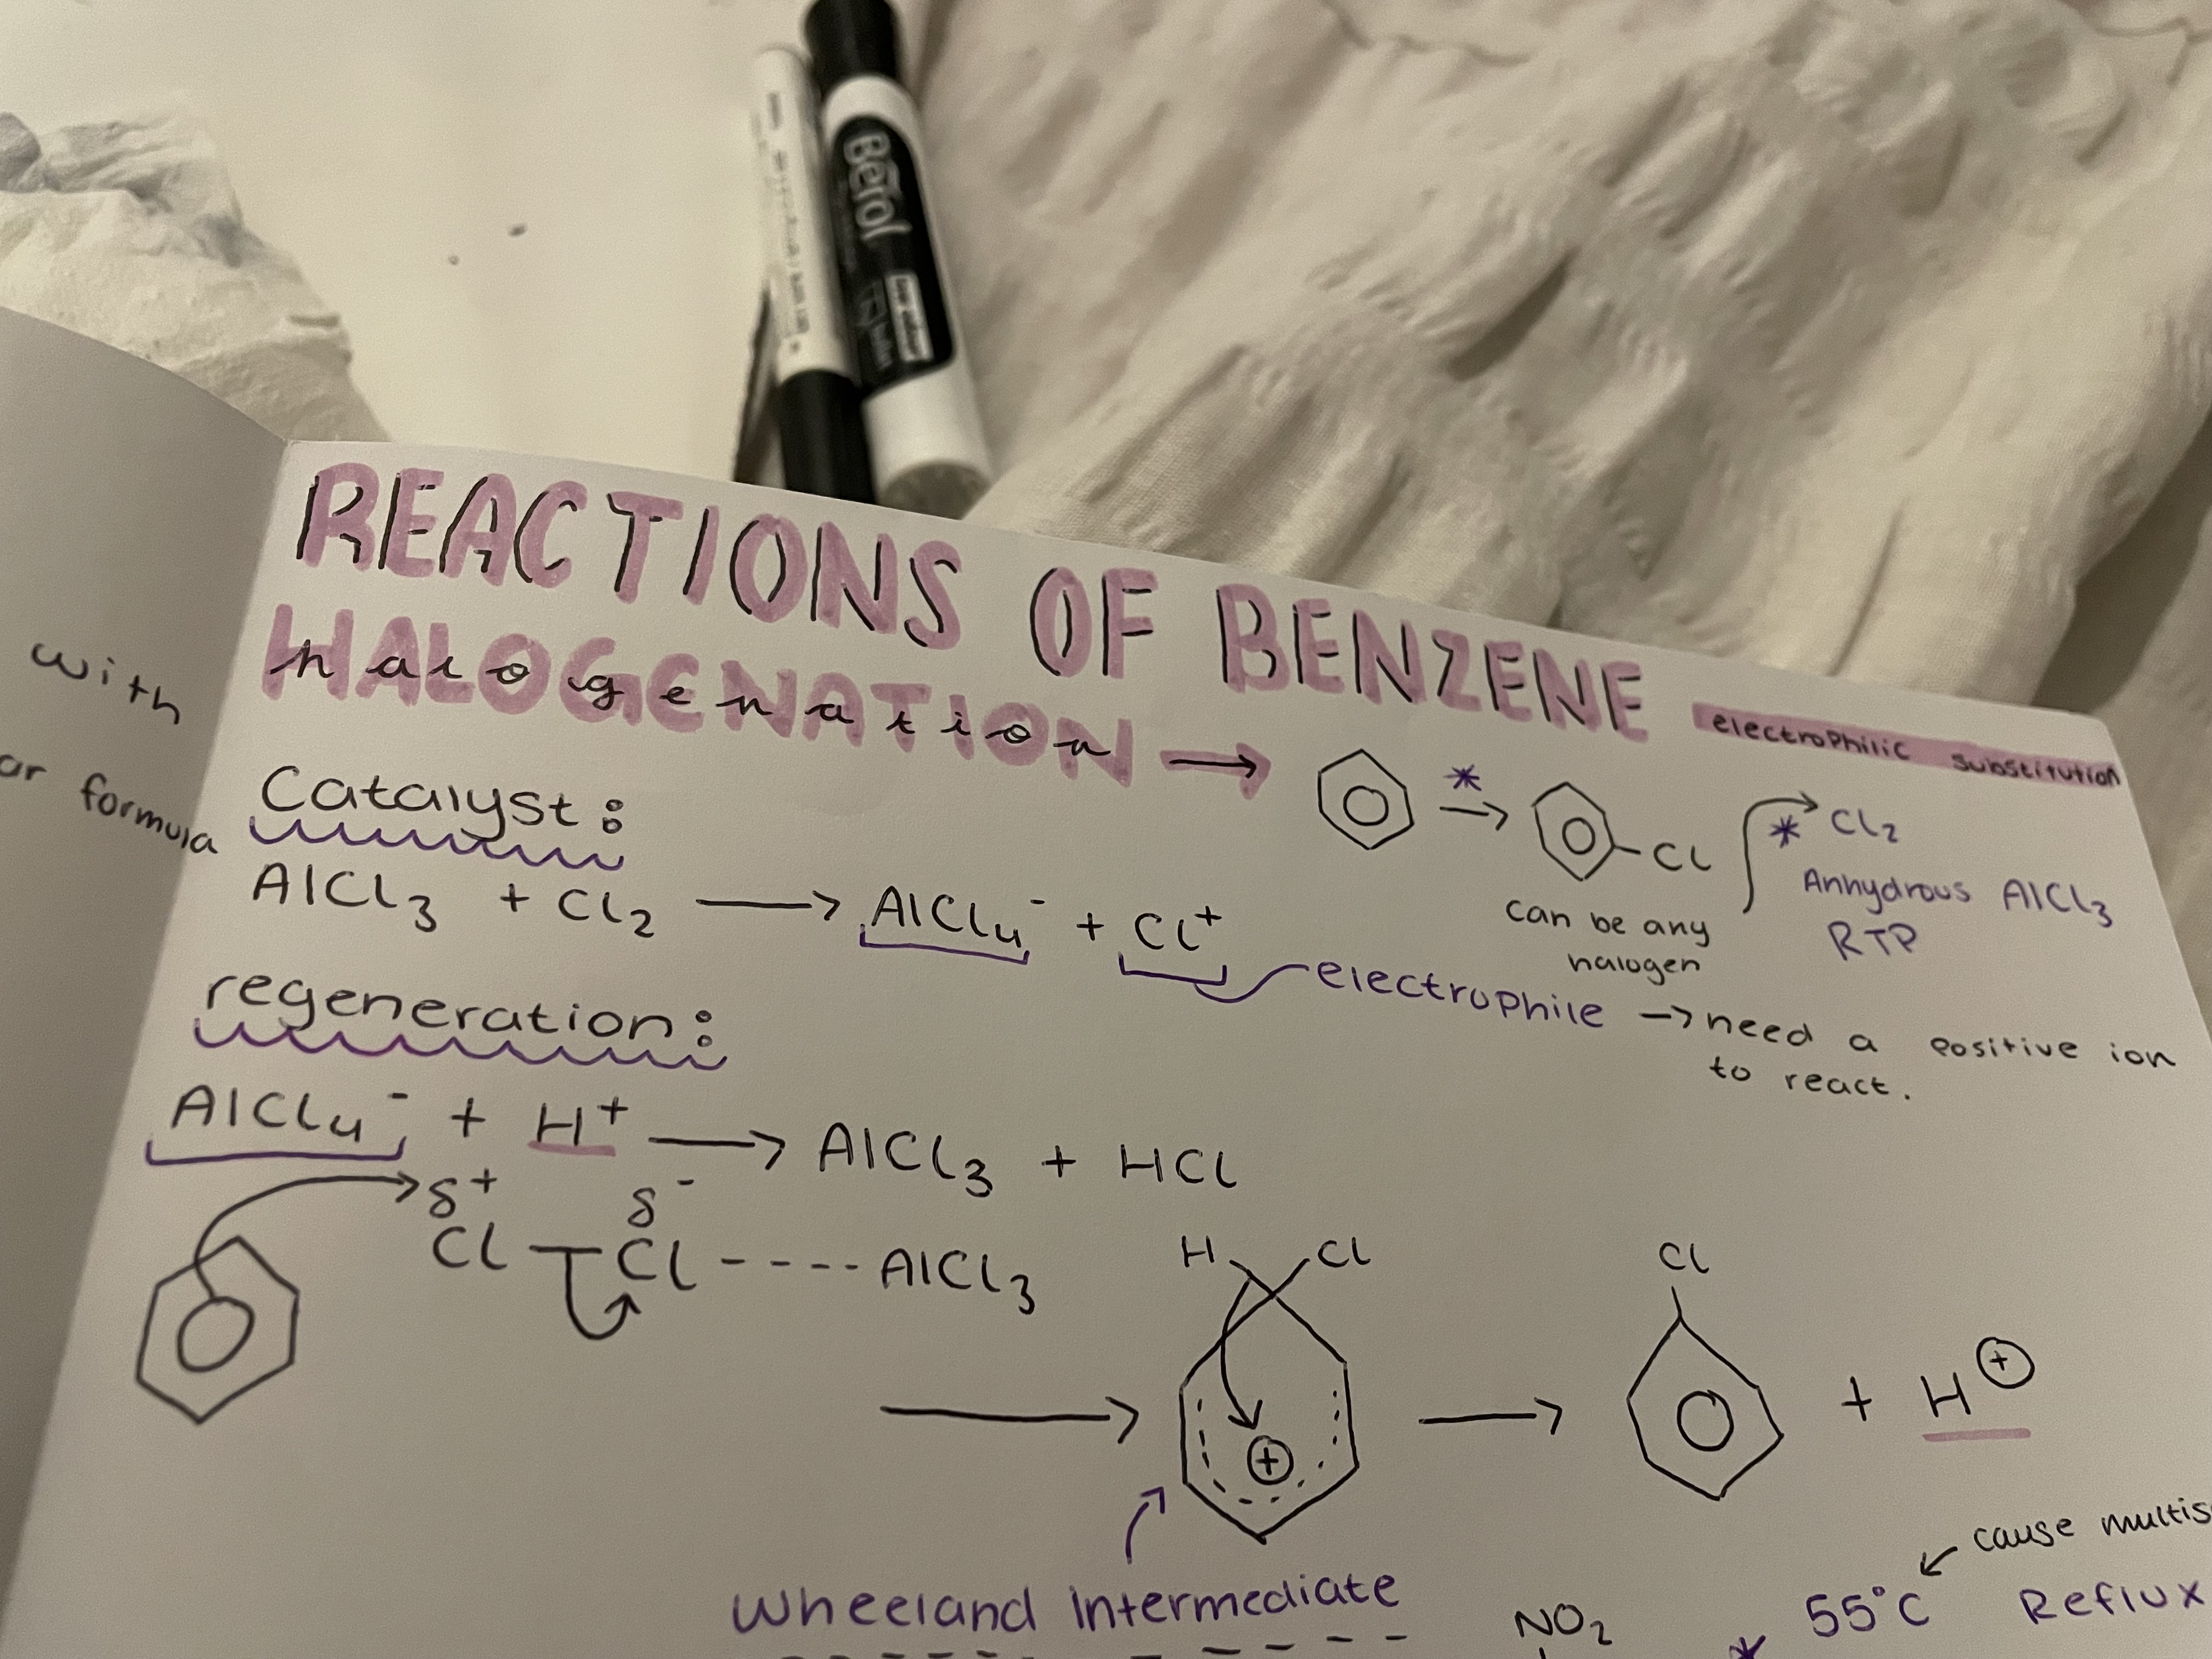 Berol
with
ar formula
REACTIONS OF BENZENE
electrophilic substitution
HALOGENATION
halogenation →
* →
Cl
* Cl₂
Anhydrous AlCl₃
RTP
can be any
halogen
Catalyst:
AlCl₃ + Cl₂ → AlCl₄⁻ + Cl⁺
electrophile → need a positive ion
to react.
regeneration:
AlCl₄⁻ + H⁺ → AlCl₃ + HCl
δ⁺ δ⁻
Cl — Cl ---- AlCl₃
H Cl
⊕
→ →
Cl
+ H⊕
Wheeland Intermediate
cause multis
55°C Reflux
NO₂
*